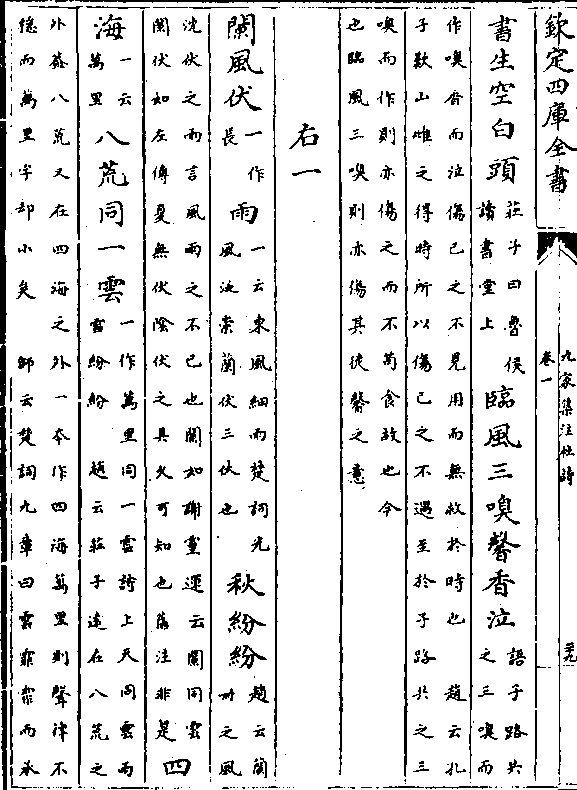 欽定四庫全書
九家集注杜詩
卷一
書生空白頭
莊子曰魯侯
讀書堂上
臨風三嗅馨香泣
語子路共
之三嗅而
作嗅香而泣傷己之不見用而無故於時也 趙云孔
子歎山雌之得時所以傷己之不遇至於子路共之三
嗅而作則亦傷之而不茍食故也今
也臨風三嗅則亦傷其徒馨之意
右一
闌風伏
一作
長
雨
一云東風細雨楚詞光
風汎崇蘭伏三伏也
秋紛紛
趙云闌
珊之風
沈伏之雨言風雨之不已也闌如謝靈運云闌同雲
闌伏如左傳夏無伏陰伏之具久可知也舊注非是
四
海
一云
萬里
八荒同一雲
一作萬里同一雲詩上天同雲雨
雪紛紛 趙云莊子遠在八荒之
外葢八荒又在四海之外一本作四海萬里則聲律不
穩而萬里字却小矣 師云楚詞九章曰雲霏霏而承